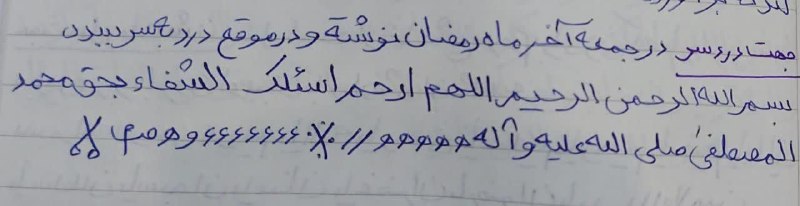 جهت دردسر در جمعه آخر ماه رمضان نوشتة و در موقع درد بسر ببندن
بسم الله الرحمن الرحیم اللهم ارحم اسئلک الشفاء بحق محمد
المصطفی صلی الله علیه و آله ه ه ه ه ه // ٪ ۶۶۶۶۶۶۶ و ه